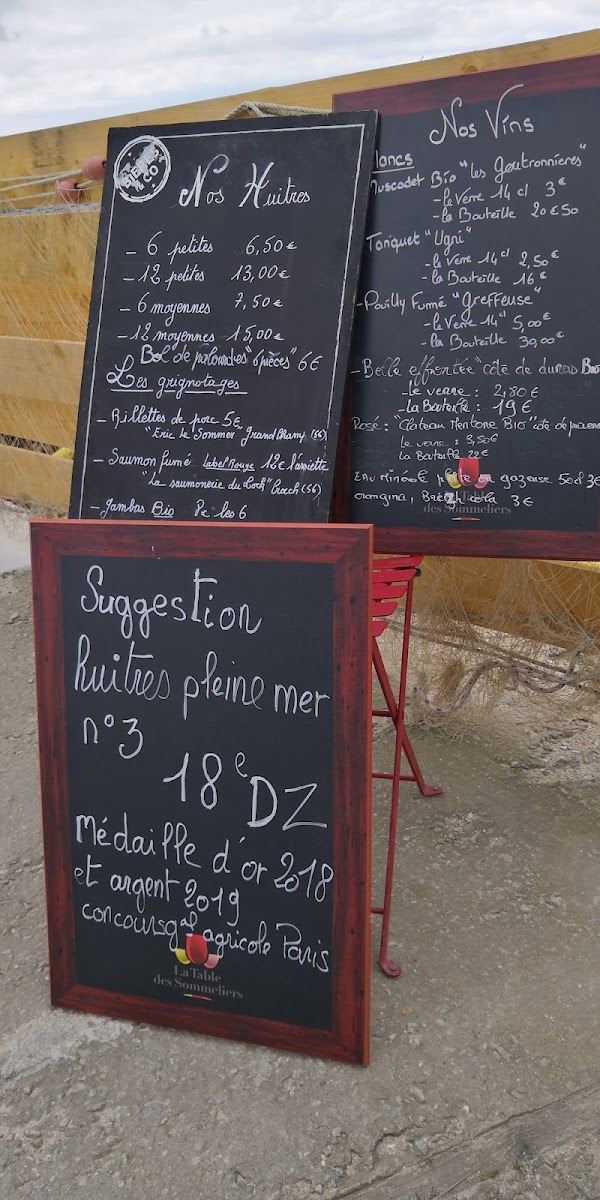 Nos Huitres
- 6 petites 6,50€
- 12 petites 13,00€
- 6 moyennes 7,50€
- 12 moyennes 15,00€
Bol de palourdes "6 pièces" 6€
Les grignotages
- Rillettes de porc 5€
"Eric le Sommer" Grandchamp (56)
- Saumon fumé Label Rouge 12€ l'assiette
"La saumonerie du Loch" Crach (56)
- Gambas Bio 8€ les 6
Nos Vins
Blancs
Muscadet Bio "Les Goutronnières"
- Le Verre 14 cl 3€
- La Bouteille 20€50
Tariquet "Ugni"
- Le Verre 14 cl 2,50€
- La Bouteille 16€
- Pouilly Fumé "Greffeuse"
- Le Verre 14cl 5,00€
- La Bouteille 39,00€
- Belle effrontée "côte de duras Bio
- Le verre : 2,80€
- La Bouteille : 19€
Rosé : "Château Mentone Bio" côte de provence
Le verre : 3,50€
La Bouteille 22€
Eau minérale plate ou gazeuse 50cl 3€
orangina, Breizh cola 3€
des Sommeliers
Suggestion
huitres pleine mer
n°3
18€ DZ
Médaille d'or 2018
et argent 2019
concours gal agricole Paris
La Table
des Sommeliers